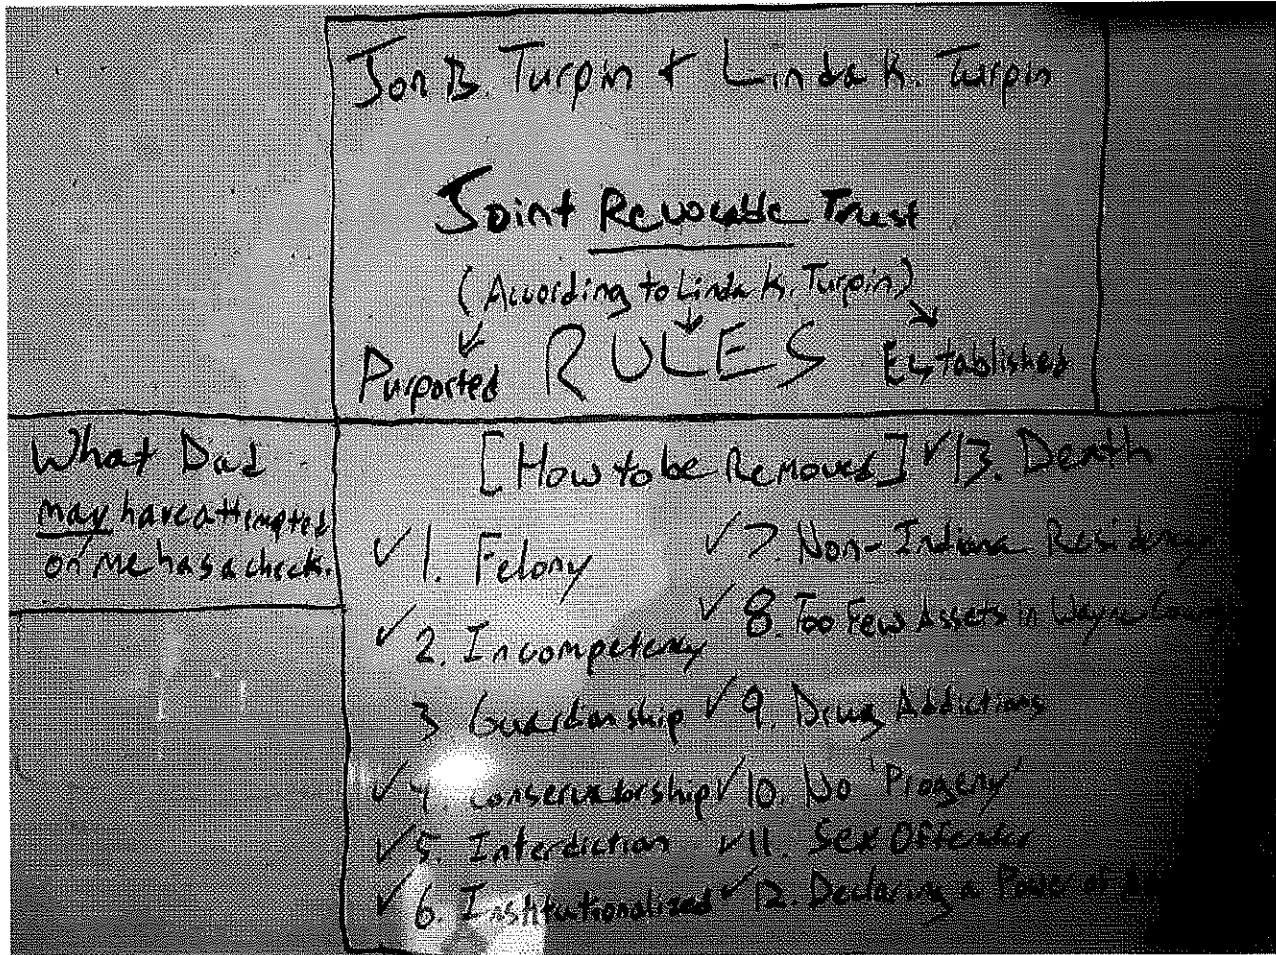 Jon B. Turpin + Linda K. Turpin
Joint Revocable Trust
(According to Linda K. Turpin)
Purported RULES Established
What Dad
may have attempted
on me has a check.
[How to be Removed] ✓13. Death
✓1. Felony
✓2. Incompetency
3 Guardianship
✓4. Conservatorship
✓5. Interdiction
✓6. Institutionalized
✓7 Non-Indiana Residency
✓8. Too Few Assets in Wayne
✓9. Drug Addictions
✓10. No 'Progeny'
✓11. Sex Offender
✓12. Declaring a Power of